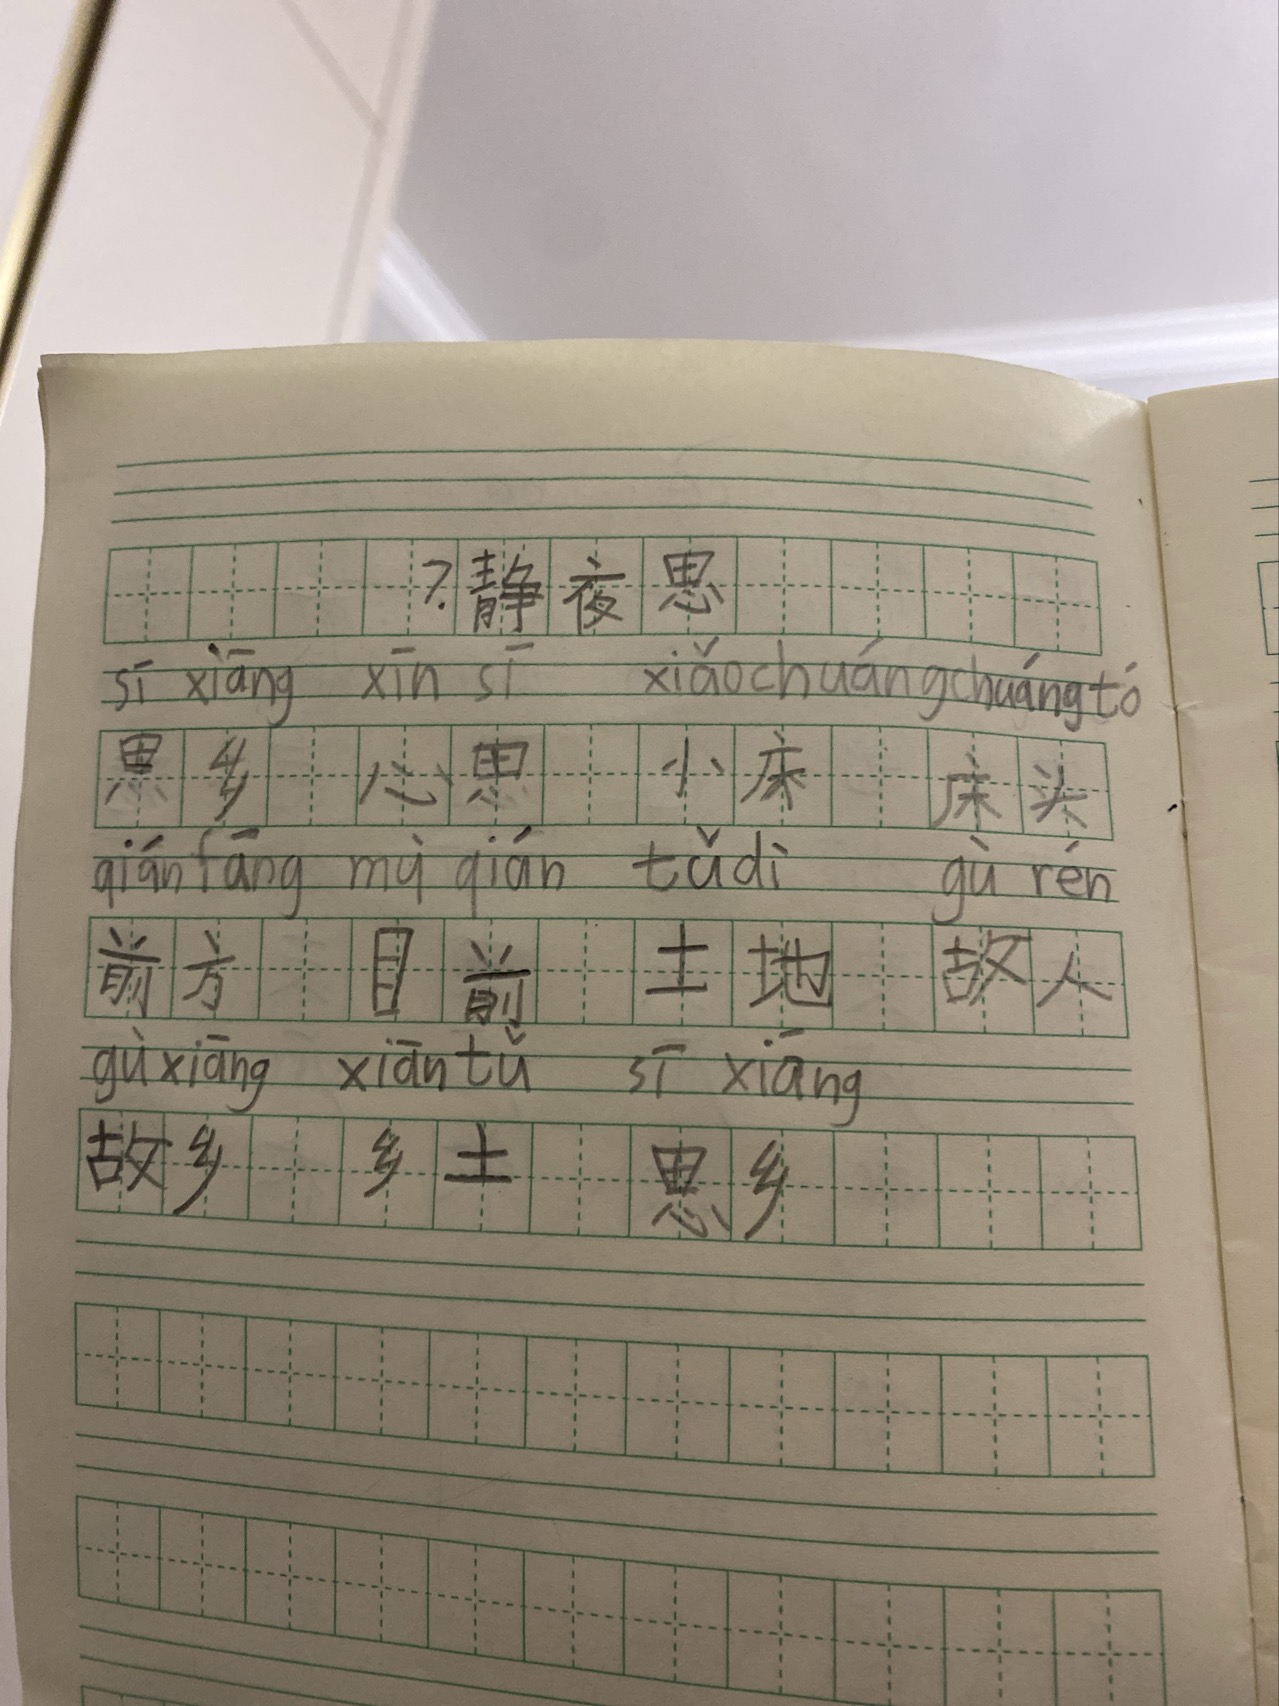 7.静夜思
sī xiāng xīn sī xiǎochuángchuángtó
思乡 心思 小床 床头
qiánfāng mù qián tǔdì gù rén
前方 目前 土地 故人
gùxiāng xiāntǔ sī xiāng
故乡 乡土 思乡